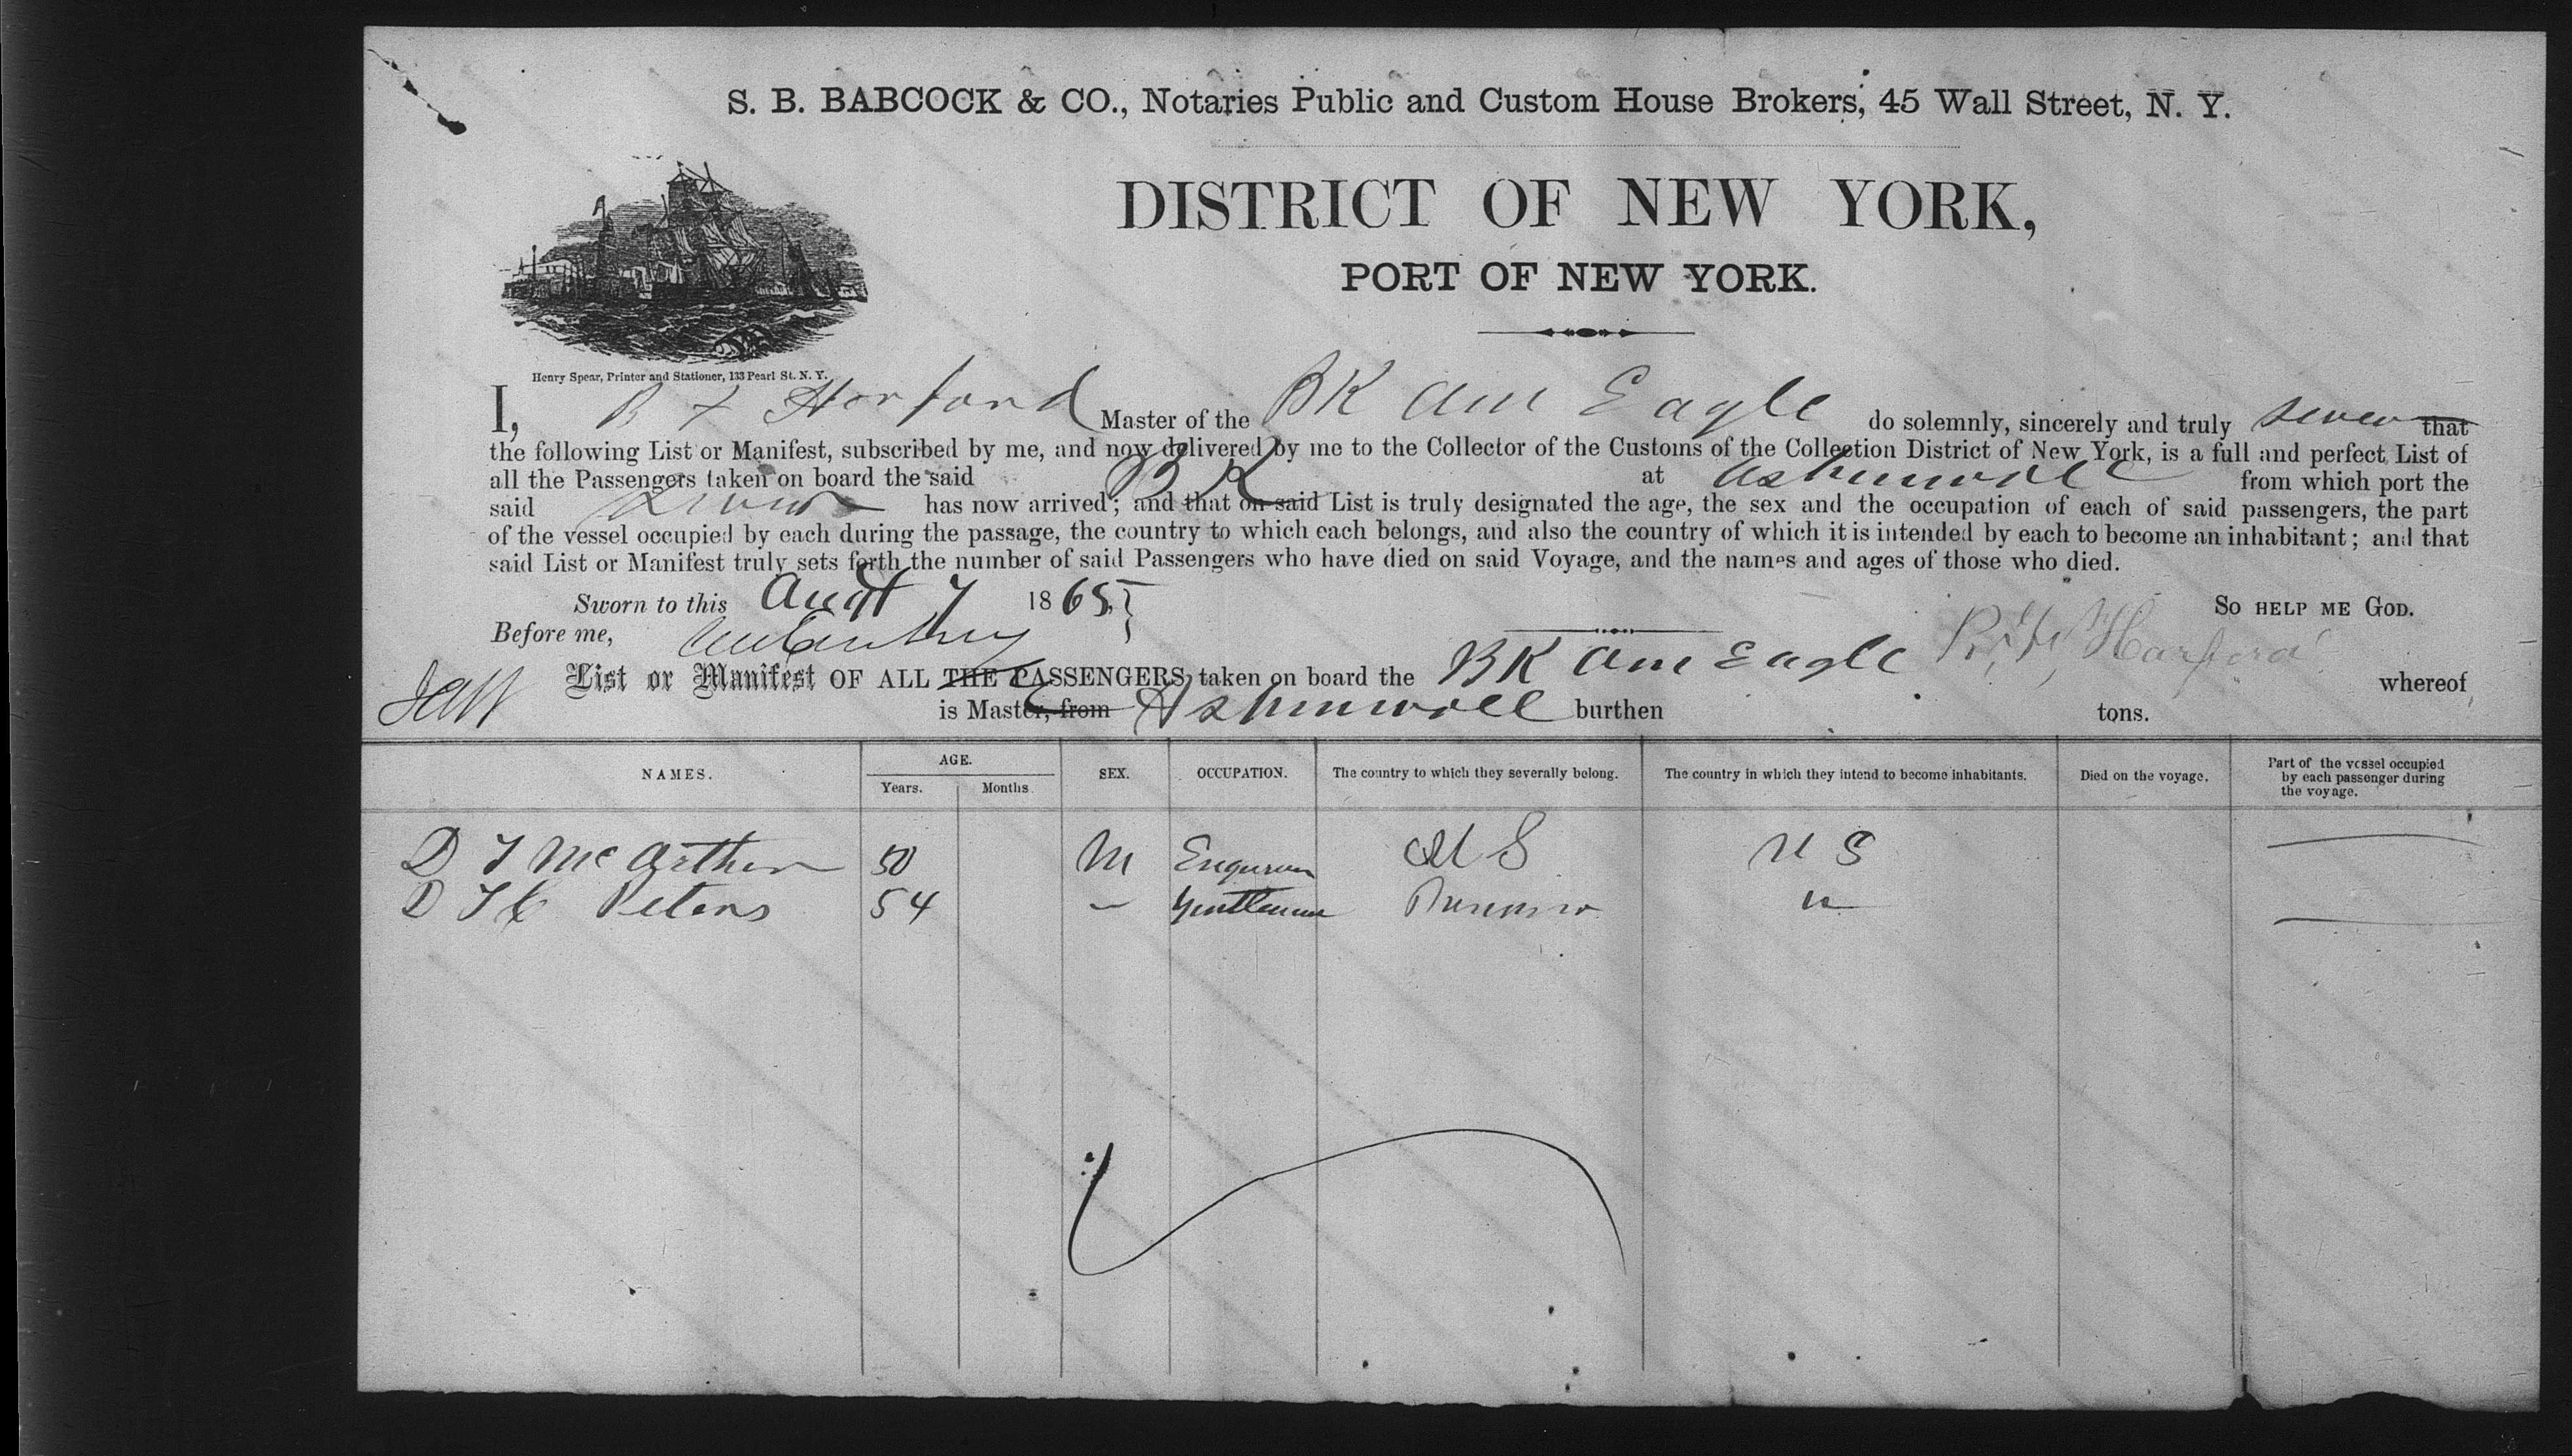 S. B. BABCOCK & CO., Notaries Public and Custom House Brokers, 45 Wall Street, N. Y.
DISTRICT OF NEW YORK,
PORT OF NEW YORK.
Henry Spear, Printer and Stationer, 133 Pearl St. N. Y.
I, Horford Master of the BK Am Eagle do solemnly, sincerely and truly swear that
the following List or Manifest, subscribed by me, and now delivered by me to the Collector of the Customs of the Collection District of New York, is a full and perfect List of
all the Passengers taken on board the said BK at Ashinwall from which port the
said has now arrived; and that on said List is truly designated the age, the sex and the occupation of each of said passengers, the part
of the vessel occupied by each during the passage, the country to which each belongs, and also the country of which it is intended by each to become an inhabitant; and that
said List or Manifest truly sets forth the number of said Passengers who have died on said Voyage, and the names and ages of those who died.
Sworn to this Augt 7 1865 } So HELP ME GOD.
Before me,
List or Manifest OF ALL THE PASSENGERS taken on board the BK Am Eagle whereof
is Master, from Ashinwall burthen tons.
NAMES. AGE. SEX. OCCUPATION. The country to which they severally belong. The country in which they intend to become inhabitants. Died on the voyage. Part of the vessel occupied by each passenger during the voyage.
Years. Months
D McArthur 50 M U S U S
D Peters 54 " Gentleman "